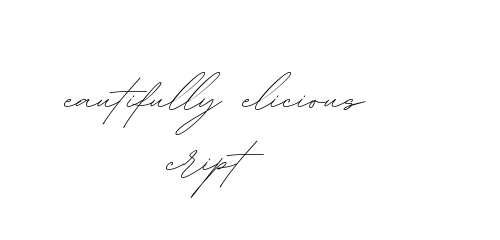 eautifully elicious
cript